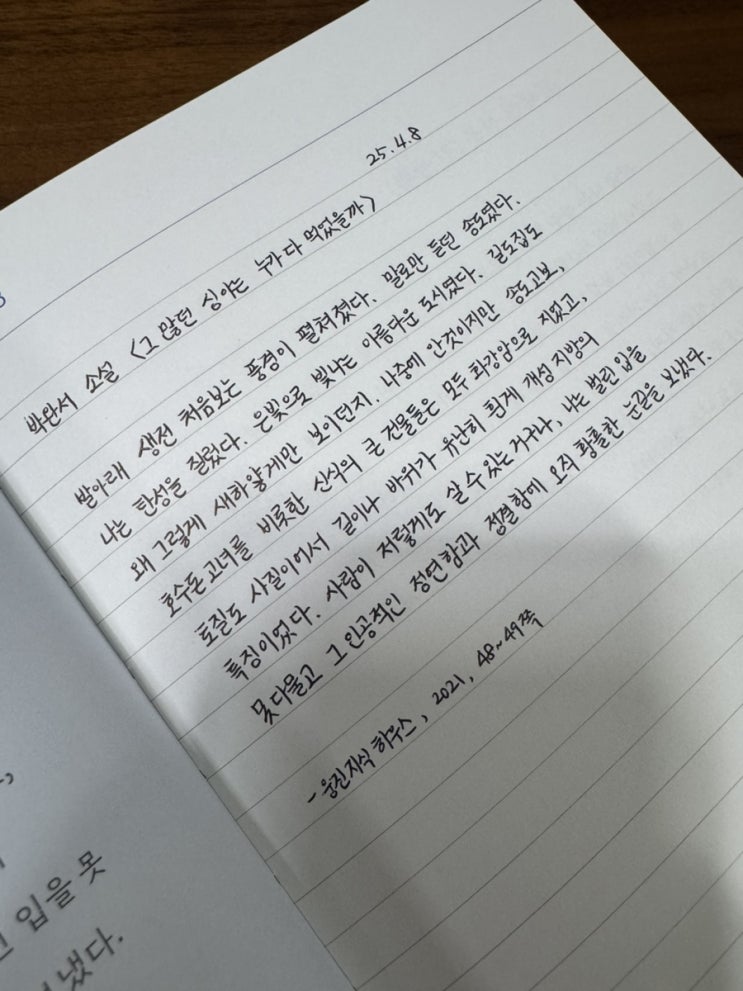 25.4.8
박완서 소설 <그 많던 싱아는 누가 다 먹었을까>
발아래 생전 처음보는 풍경이 펼쳐졌다. 말로만 듣던 송도였다.
나는 탄성을 질렀다. 은빛으로 빛나는 아름다운 도시였다. 길도집도
왜 그렇게 새하얗게만 보이던지. 나중에 안것이지만 송도고보,
호수돈고녀를 비롯한 신식의 큰 건물들은 모두 화강암으로 지었고,
토질도 사질이어서 길이나 바위가 유난히 흰게 개성 지방의
특징이었다. 사람이 저렇게도 살 수 있는 거구나, 나는 벌린 입을
못다물고 그 인공적인 정연함과 정결함에 오직 황홀한 눈길을 보냈다.
- 웅진지식하우스, 2021, 48~49쪽
입을 못
냈다.